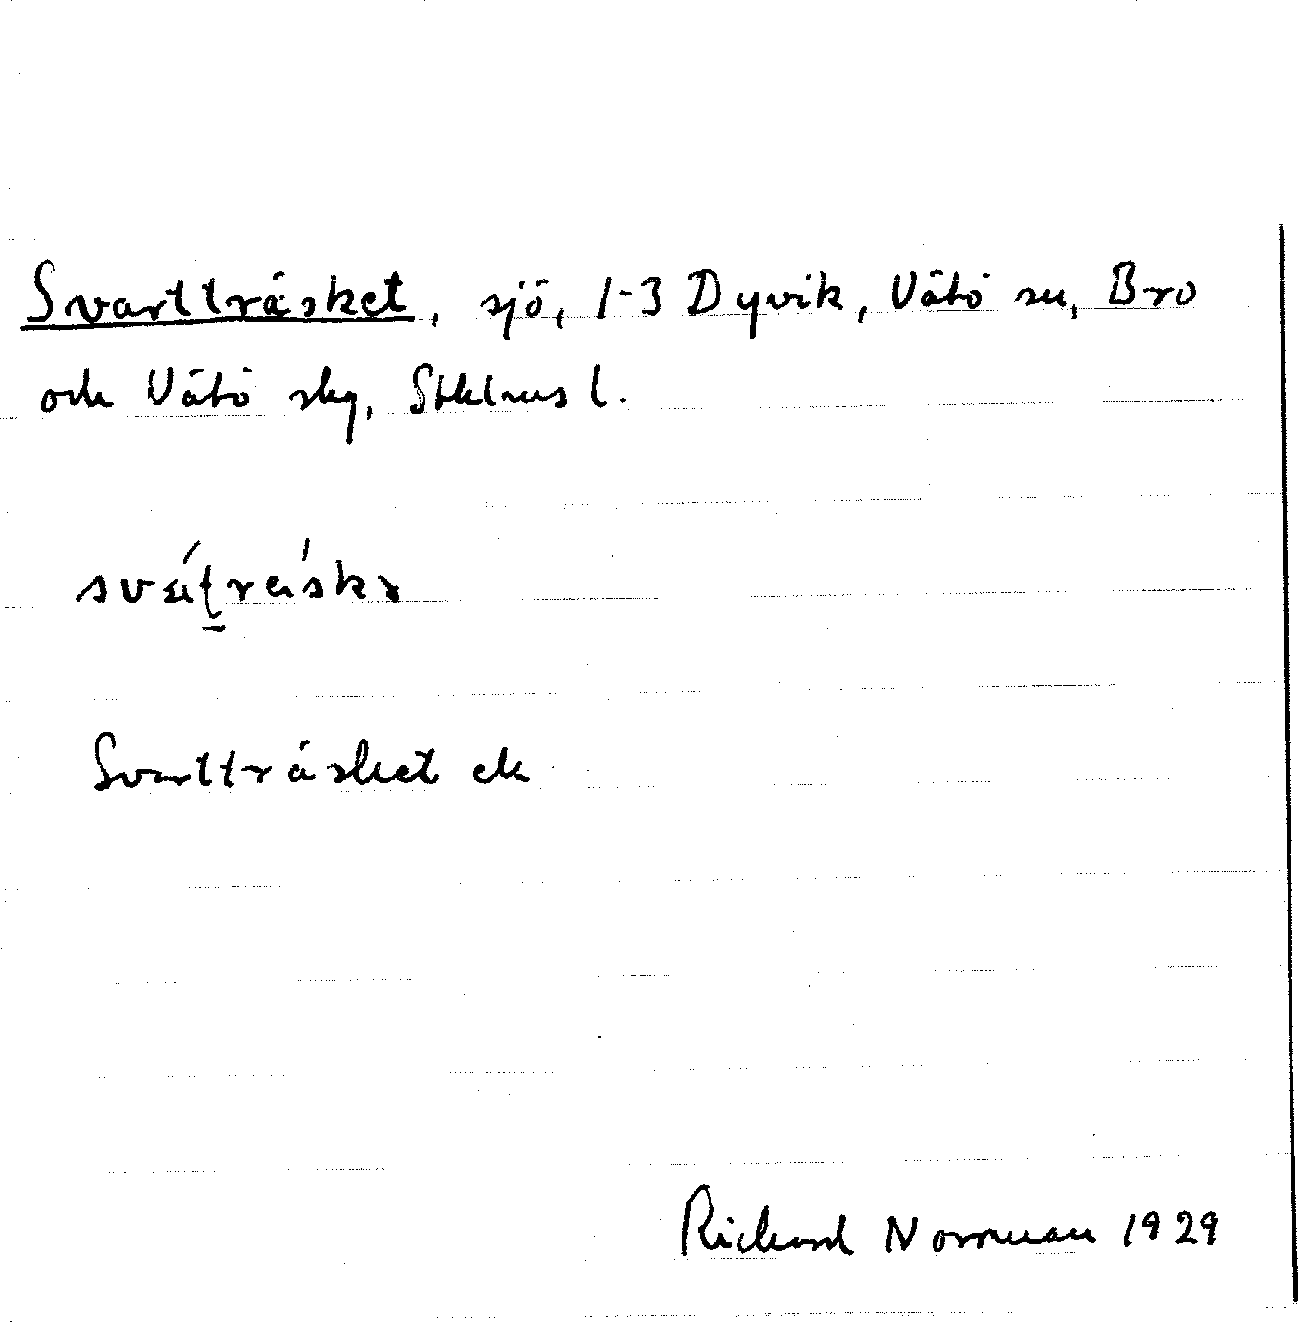 Svartträsket, sjö, 1-3 Dyvik, Vätö sn, Bro
och Vätö skg, Sthlms l.
Svartträsket ek
Richard Norrman 1929